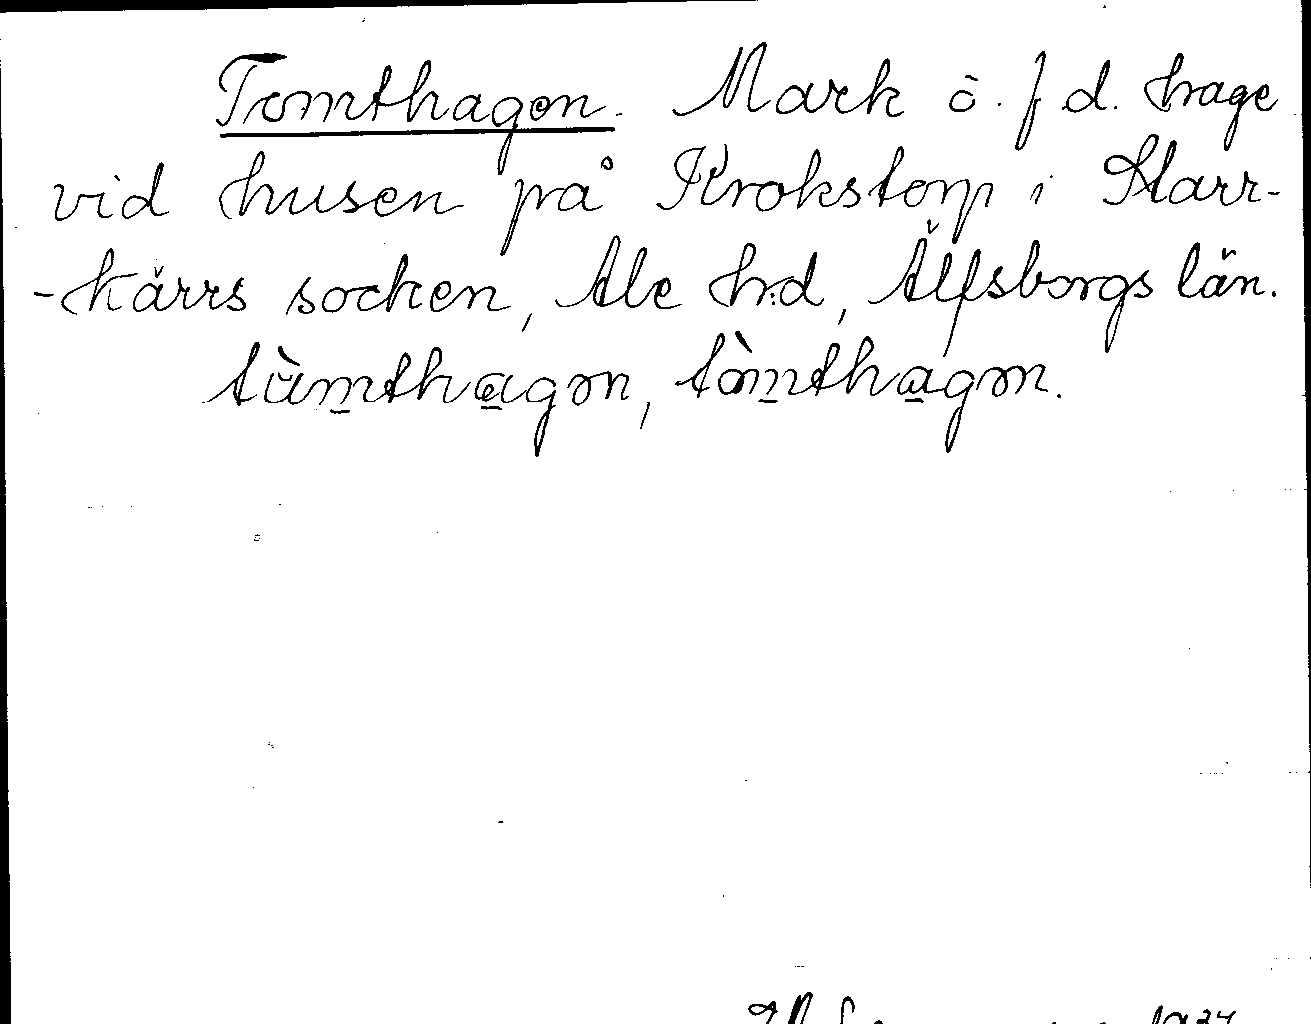 Tomthagen. Mark ö. f d. hage
vid husen på Krokstorp i Starr-
-kärrs socken, Ale hd, Älfsborgs län.
tùmthagən, tòmthagən.